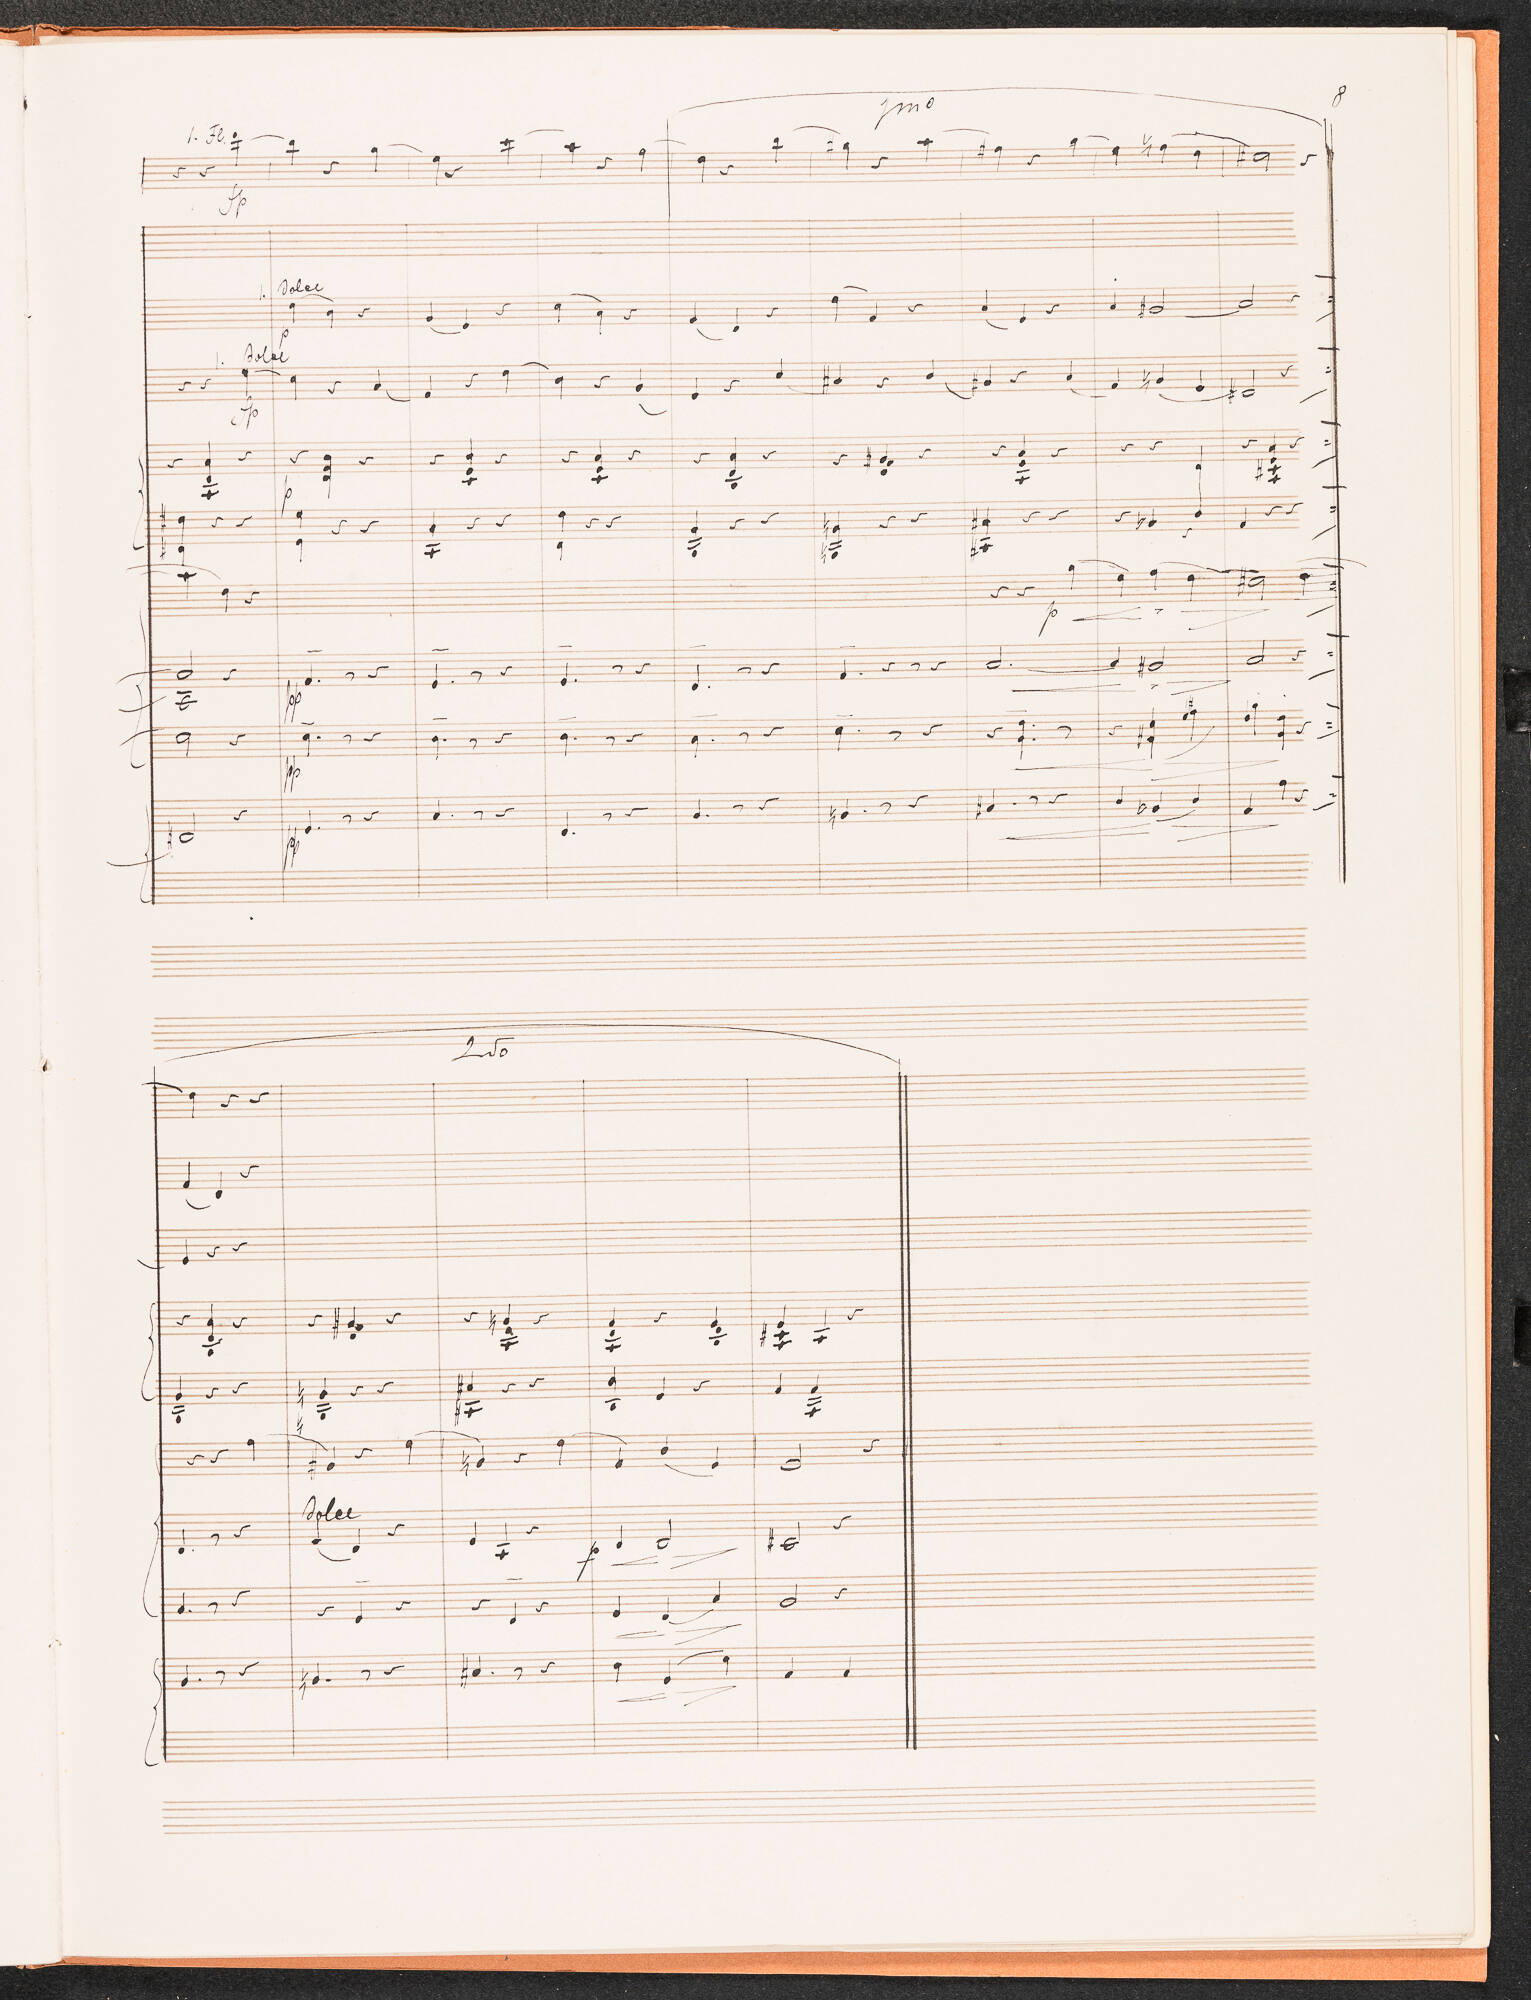 8
1mo
1. Fl.
fp
1. dolce
p
1. dolce
fp
p
p
pp
pp
pp
2do
dolce
p